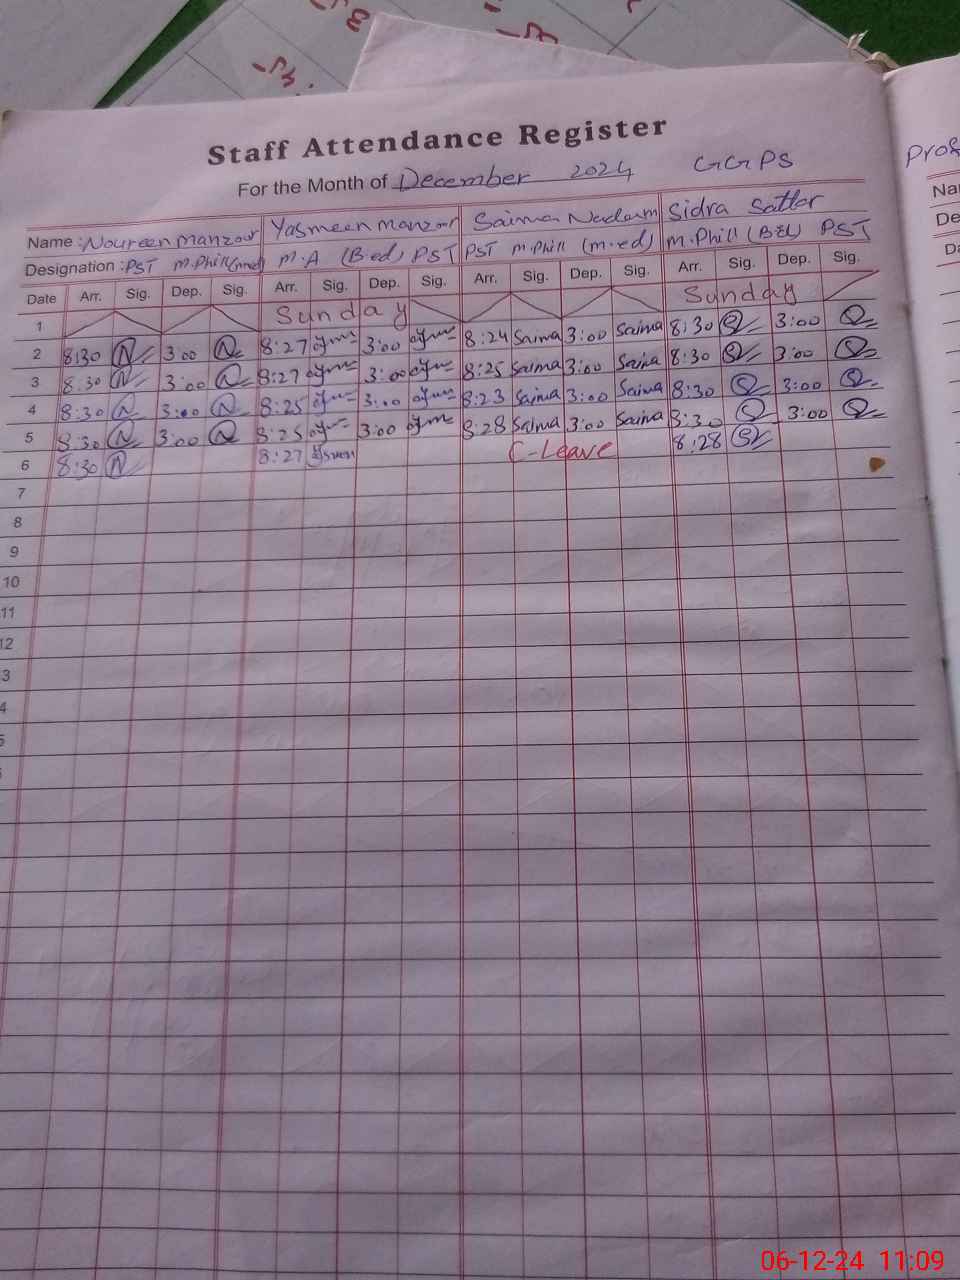 Staff Attendance Register
For the Month of December 2024 GGPS
Name : Noureen Manzoor Yasmeen Manzoor Saima Nadeem Sidra Sattar
Designation : PST M.Phill (med) M.A (B.ed) PST PST M.Phill (m.ed) M.Phill (B.Ed) PST
Date Arr. Sig. Dep. Sig. Arr. Sig. Dep. Sig. Arr. Sig. Dep. Sig. Arr. Sig. Dep. Sig.
1 Sunday Sunday
2 8:30 N 3:00 N 8:27 3:00 8:24 Saima 3:00 Saima 8:30 S 3:00 S
3 8:30 N 3:00 N 8:27 3:00 8:25 Saima 3:00 Saima 8:30 S 3:00 S
4 8:30 N 3:00 N 8:25 3:00 8:23 Saima 3:00 Saima 8:30 S 3:00 S
5 8:30 N 3:00 N 8:25 3:00 8:28 Saima 3:00 Saima 8:30 S 3:00 S
6 8:30 N 8:27 C-Leave 8:28 S
7
8
9
10
11
12
3
4
5
06-12-24 11:09